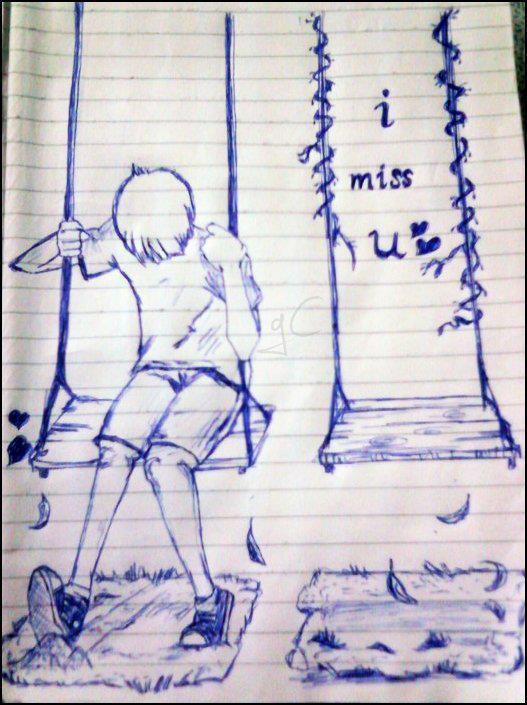 i
miss
u
gC